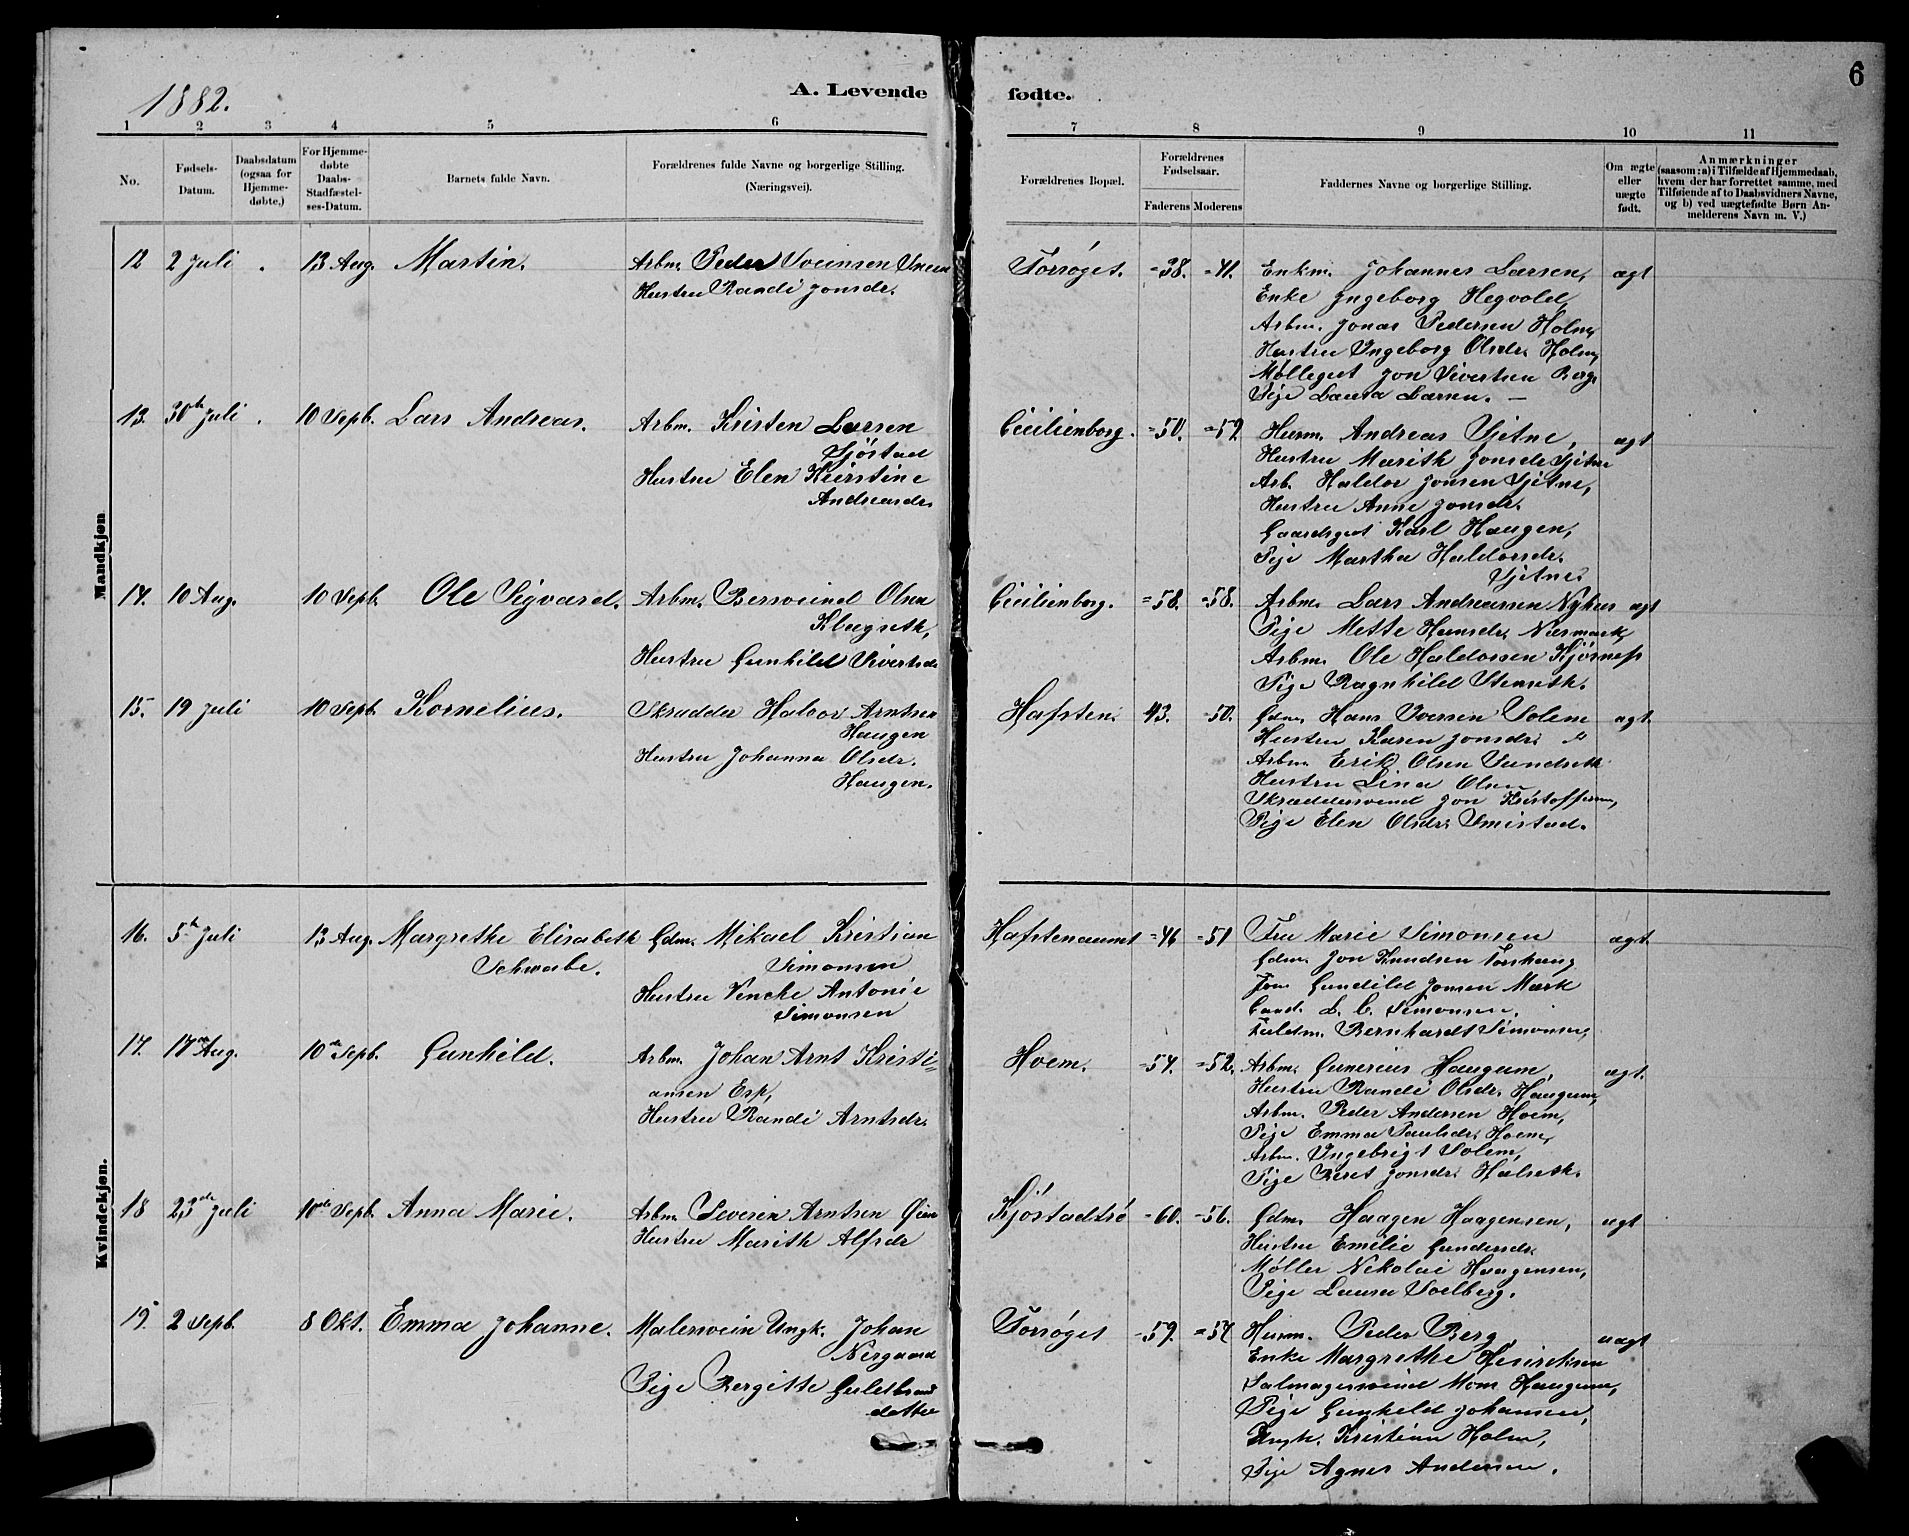 1882.
A. Levende
fødte.
6
1 2 3 4 5 6
7 8 9 10 11
No.
Fødsels-
Datum.
Daabsdatum
(ogsaa for
Hjemme-
døbte.)
For Hjemme-
døbte
Daabs-
Stadfæstel-
ses-Datum.
Barnets fulde Navn.
Forældrenes fulde Navne og borgerlige Stilling.
(Næringsvei).
Forældrenes Bopæl.
Forældrenes
Fødselsaar.
Faderens Moderens
Faddernes Navne og borgerlige Stilling.
Om ægte
eller
uægte
født.
Anmærkninger
(saasom: a) i Tilfælde af Hjemmedaab,
hvem der har forrettet samme, med
Tilføiende af to Daabsvidners Navne,
og b) ved uægtefødte Børn An-
melderens Navn m. V.)
Mandkjøn
12 2 Juli 13 Aug. Martin.
Arbm. Peder Sveinsen
Hustru Randi Jonsdr.
Forsøget. =38. =41.
Enkm. Johannes Larsen,
Enke Ingeborg Hegvold,
Arbm. Jonas Pedersen Holm,
Hustru Ingeborg Olsdr. Holm,
Møllegut Jon Sivertsen Berg,
Pige Laura Larsen. —
ægt
13. 30te Juli 10 Sepb. Lars Andreas.
Arbm. Kristen Larsen
Sjøstad
Hustru Elen Kierstine
Andreasdr.
Cicilienborg. =50. =52
Husm. Andreas Sjetne,
Hustru Marith Jonsdr Sjetne
Arb. Haldor Jonsen Sjetne,
Hustru Anne Jonsdr.
Gaardsgut Karl Haugen,
Pige Martha Haldorsdr.
Sjetne.
ægt
14. 10 Aug. 10 Sepb. Ole Sigvard.
Arbm. Bersveind Olsen
Klagseth,
Hustru Gunhild Sivertsdr
Cicilienborg. =58. =58.
Arbm. Lars Andreassen Nyhus
Pige Mette Hansdr. Næsmark,
Arbm. Ole Haldorsen Kjøsnes
Pige Ragnhild Stenseth.
ægt
15. 19 Juli 10 Sepb. Kornelius.
Skradder Halvor Arntsen
Haugen
Hustru Johanna Olsdr.
Haugen.
Hafsten. 43. =50.
Gdm. Hans Iversen Solem
Hustru Karen Jonsdr. "
Arbm. Erik Olsen Sundseth
Hustru Lina Olsen
Skræddersvend Jon Kristoffersen,
Pige Elen Olsdr. Smistad.
ægt.
Kvindekjøn.
16. 5te Juli 13 Aug. Margrethe Elisabeth
Schwabe.
Gdm. Mikael Kristian
Simonsen
Hustru Vencke Antonie
Simonsen
Hafstenaunet =46 =51
Fru Marie Simonsen
Gdm. Jon Knudsen Torshaug
Gunhild Jonsen Mærk
L. C. Simonsen.
Bernhardt Simonsen,
ægt.
17. 17 Aug. 10de Sepb. Gunhild.
Arbm. Johan Arnt Kristi=
ansen Esp,
Hustru Randi Arntsdr.
Hoem. =54. =52.
Arbm. Gunerius Haugum,
Hustru Randi Olsdr. Haugum,
Arbm. Peder Andersen Hoem,
Pige Emma Paulsdr. Hoem,
Arbm. Ingebrigt Solem,
Pige Beret Jonsdr. Halseth.
ægt.
18 23de Juli 10de Sepb. Anna Marie.
Arbm. Severin Arntsen Øien
Hustru Marith Alfsdr
Kjøstadtrø =60. =56.
Gdm. Haagen Haagensen,
Hustru Emilie Gundersdr.
Møller Nikolai Haagensen,
Pige Laura Solberg.
ægt
19. 2 Sepb. 8 Okt. Emma Johanne.
Malersvein Ungk. Johan
Nergaard
Pige Bergitte Guldbrands
datter
Forsøget =59. =54
Husm. Peder Berg,
Enke Margrethe Henriksen
Salmagersveind Mons Haugum,
Pige Gunhild Johansen,
Ungk. Kristian Holm,
Pige Agnes Andersen.
uægt